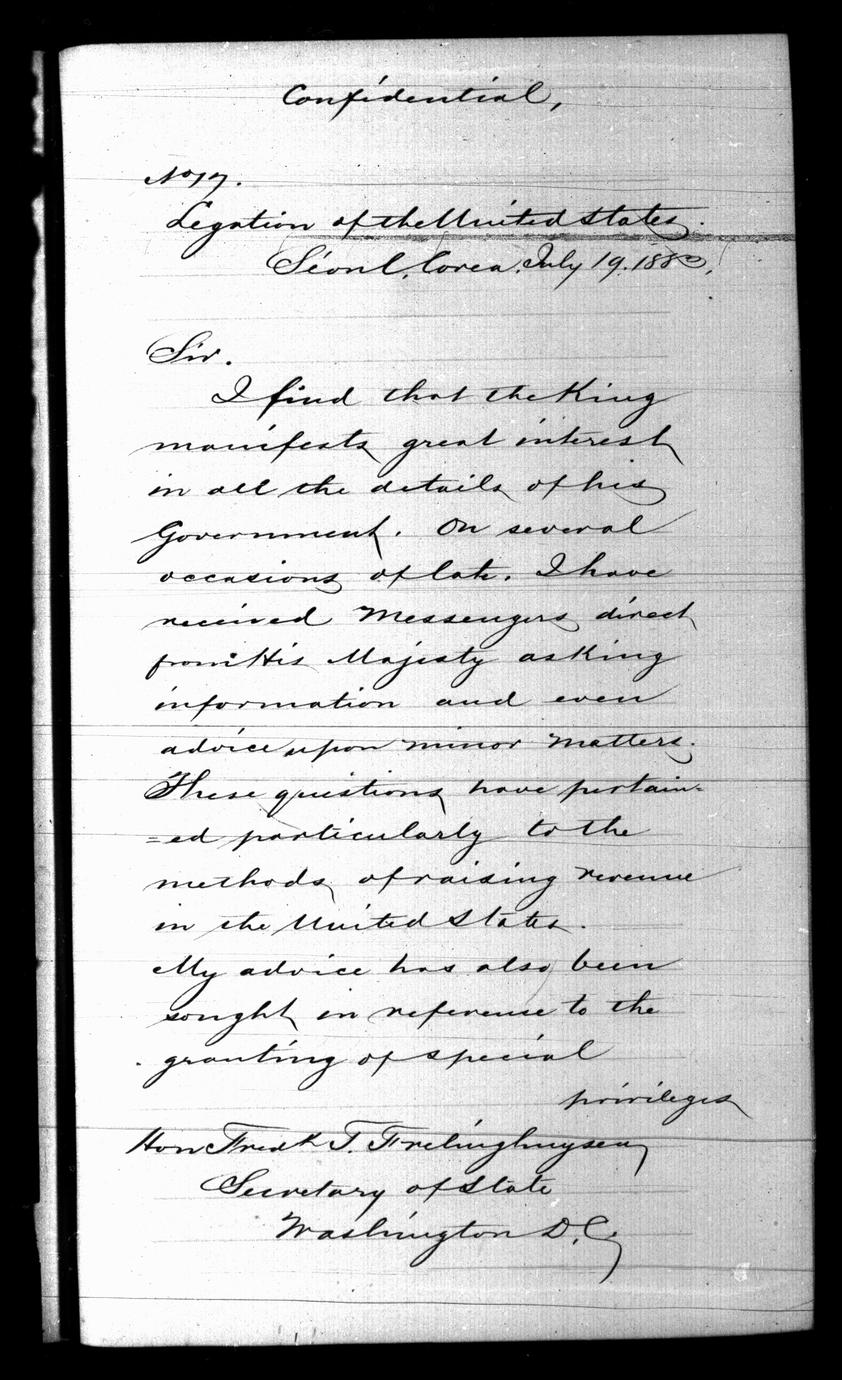 Confidential,
No 17.
Legation of the United States.
Séoul, Corea, July 19. 1883,
Sir.
I find that the King
manifests great interest
in all the details of his
Government. On several
occasions of late. I have
received Messengers direct
from His Majesty asking
information and even
advice upon minor matters.
These questions have pertain-
=ed particularly to the
methods of raising revenue
in the United States.
My advice has also been
sought in reference to the
granting of special
privileges
Hon Fredk T. Frelinghuysen
Secretary of State
Washington D.C.